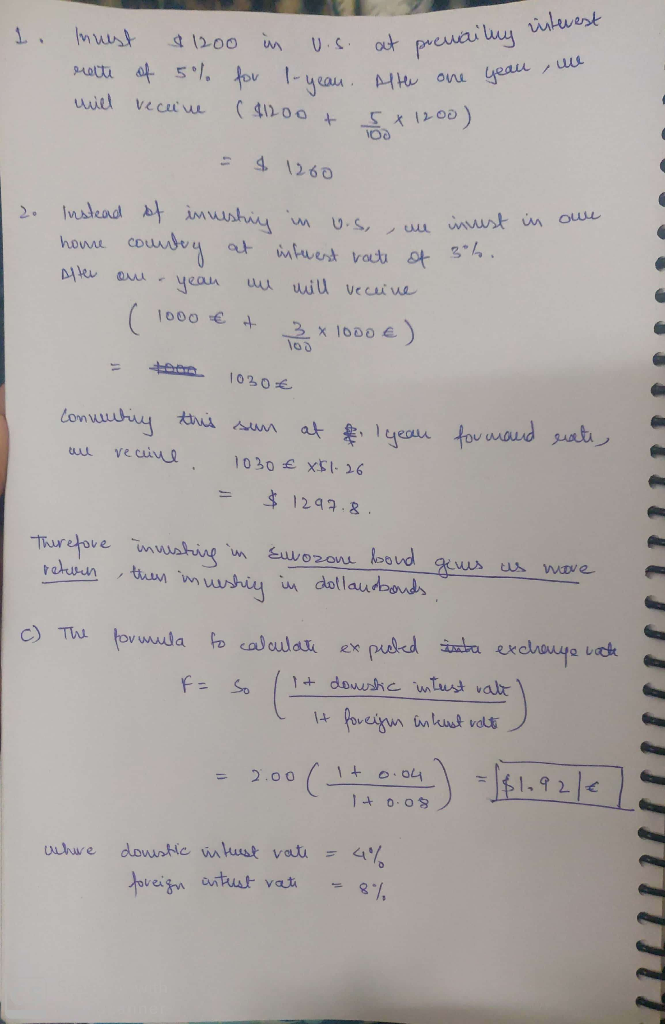 1. Invest $1200 in U.S. at prevailing interest
rate of 5% for 1-year. After one year, we
will receive ($1200 + 5/100 x 1200)
= $ 1260
2. Instead of investing in U.S., we invest in our
home country at interest rate of 3%.
After one-year we will receive
( 1000 € + 3/100 x 1000 €)
= 1030 €
Converting this sum at 1 year forward rate,
we receive. 1030 € x $1.26
= $ 1297.8.
Therefore investing in Eurozone bond gives us more
return, then investing in dollar bonds.
c) The formula to calculate expected exchange rate
F = So ( 1+ domestic interest rate / 1+ foreign interest rate )
= 2.00 ( 1 + 0.04 / 1 + 0.08 ) = $1.92/€
where domestic interest rate = 4%
foreign interest rate = 8%